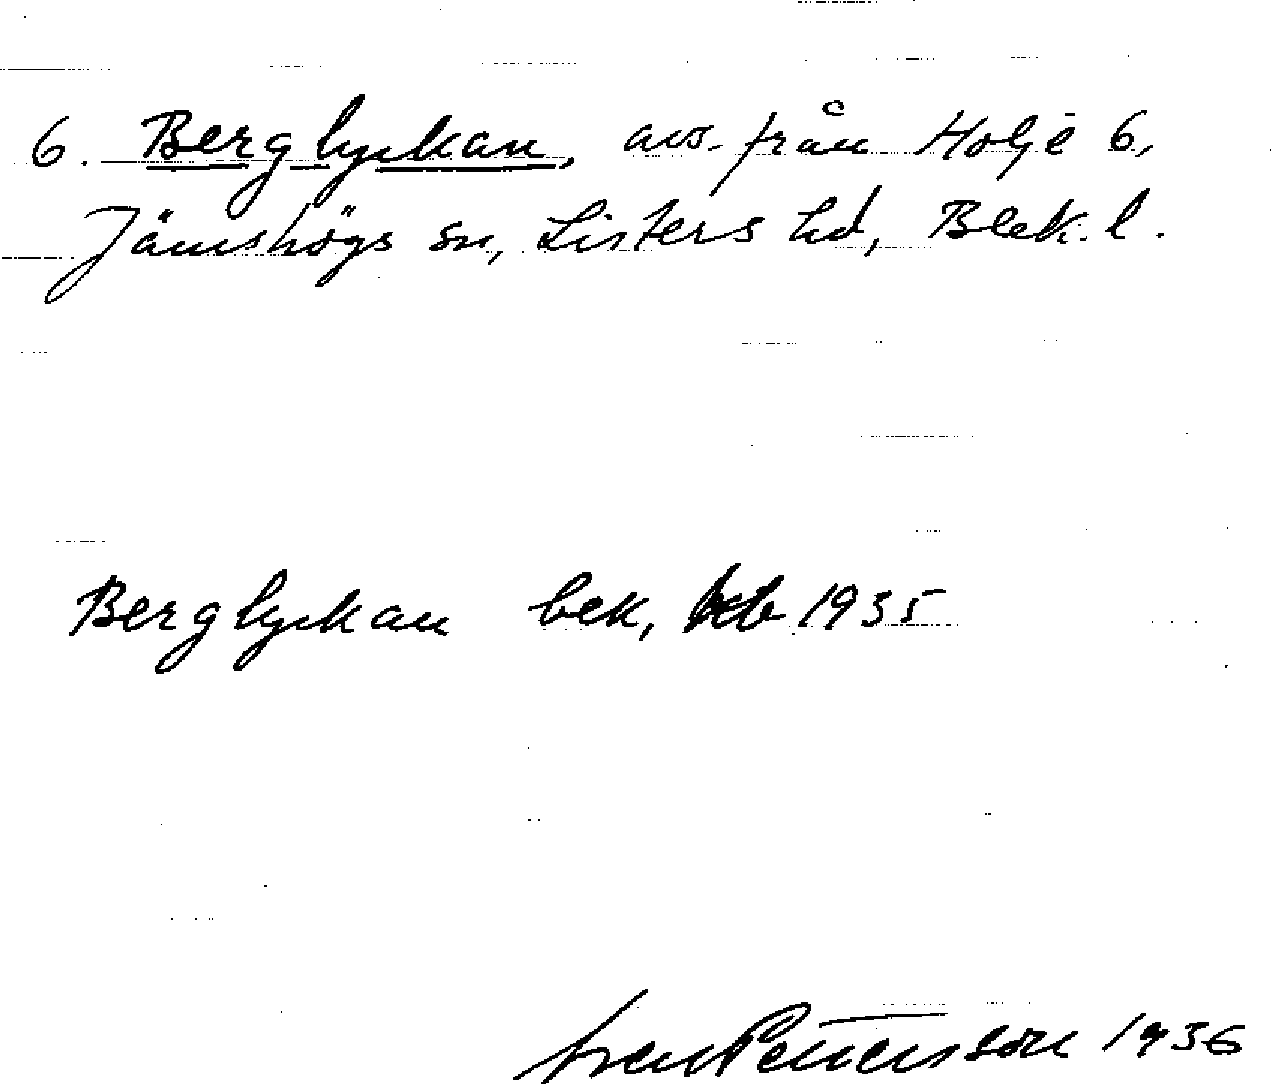 6. Berglyckan, avs. från Holje 6,
Jämshögs sn, Listers hd, Blek. l.
Berglyckan bek, 1935
Sven Pettersson 1936